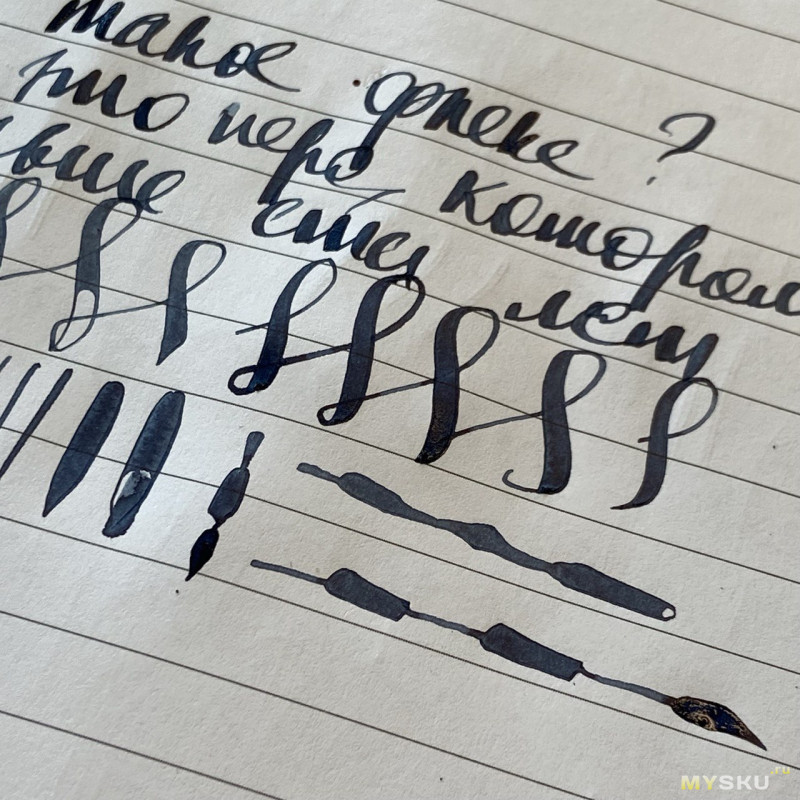 такое флекс ?
это перо которому
выше ста лет
MYSKU.ru